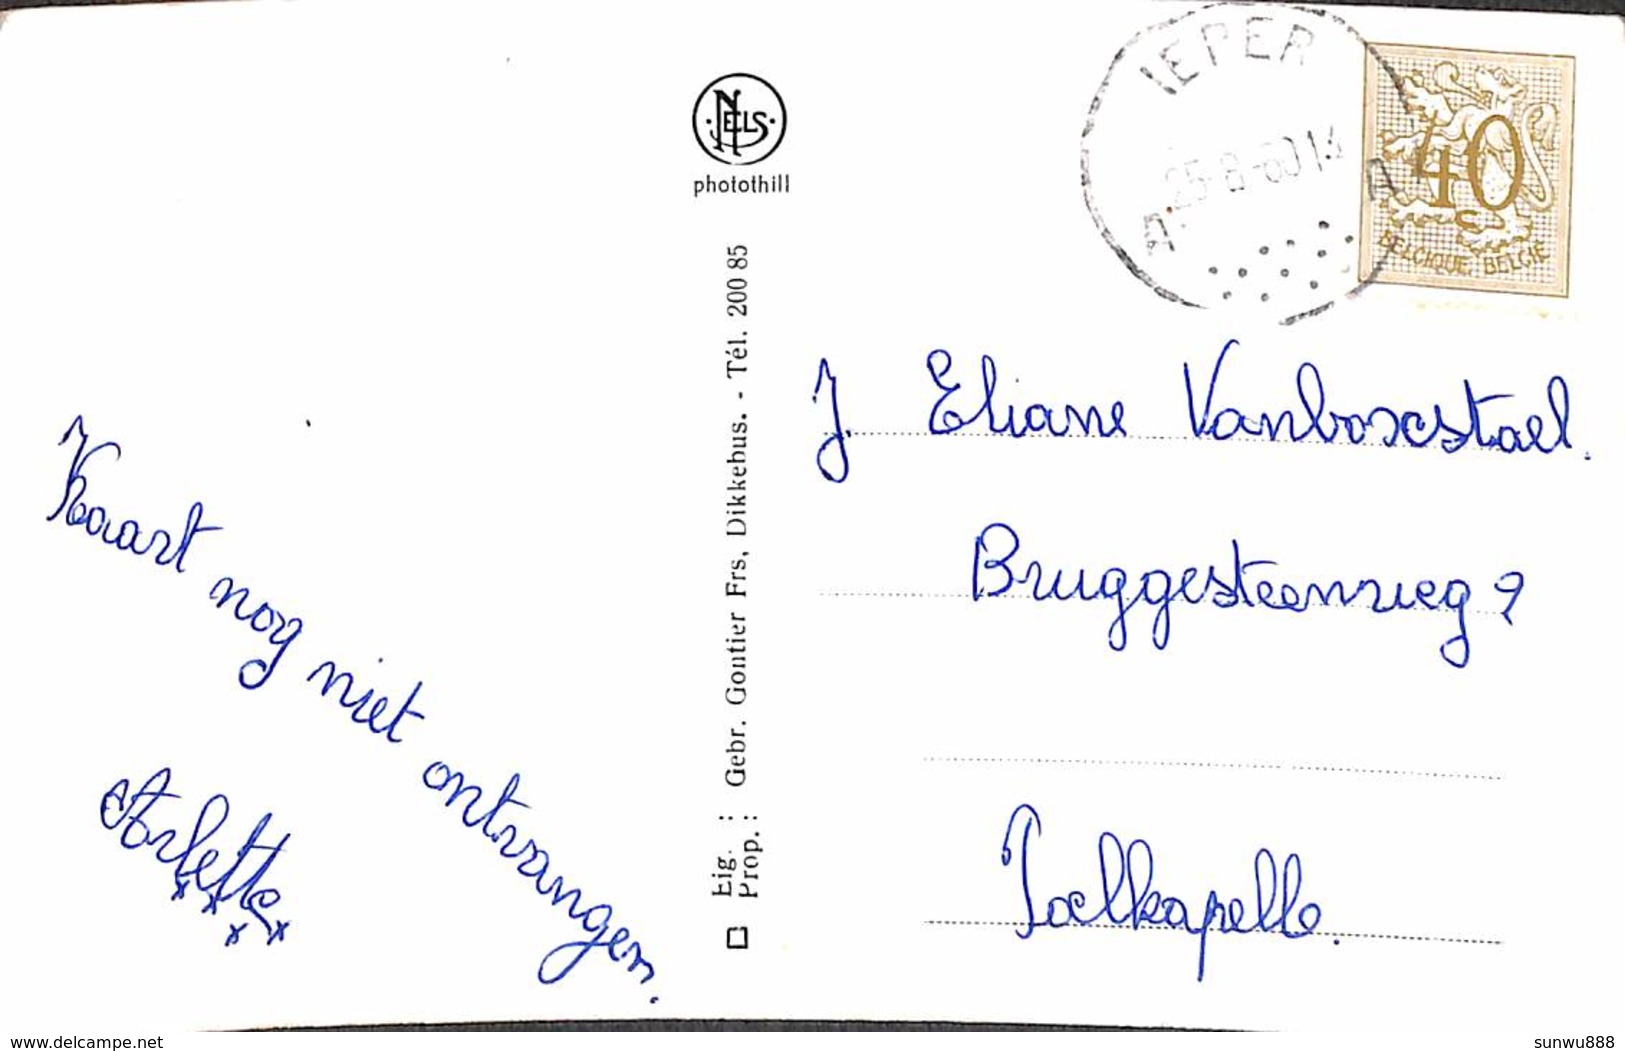 NELS
photothill
IEPER
25-8-60 14
A A
40
BELGIQUE BELGIË
Eig. : Gebr. Gontier Frs, Dikkebus. - Tél. 200 85
Prop. :
Kaart nog niet ontvangen.
Arlette
x x x x
J Eliane Vanboxstael.
Bruggesteenweg 9
Poelkapelle.
www.delcampe.net
sunwu888